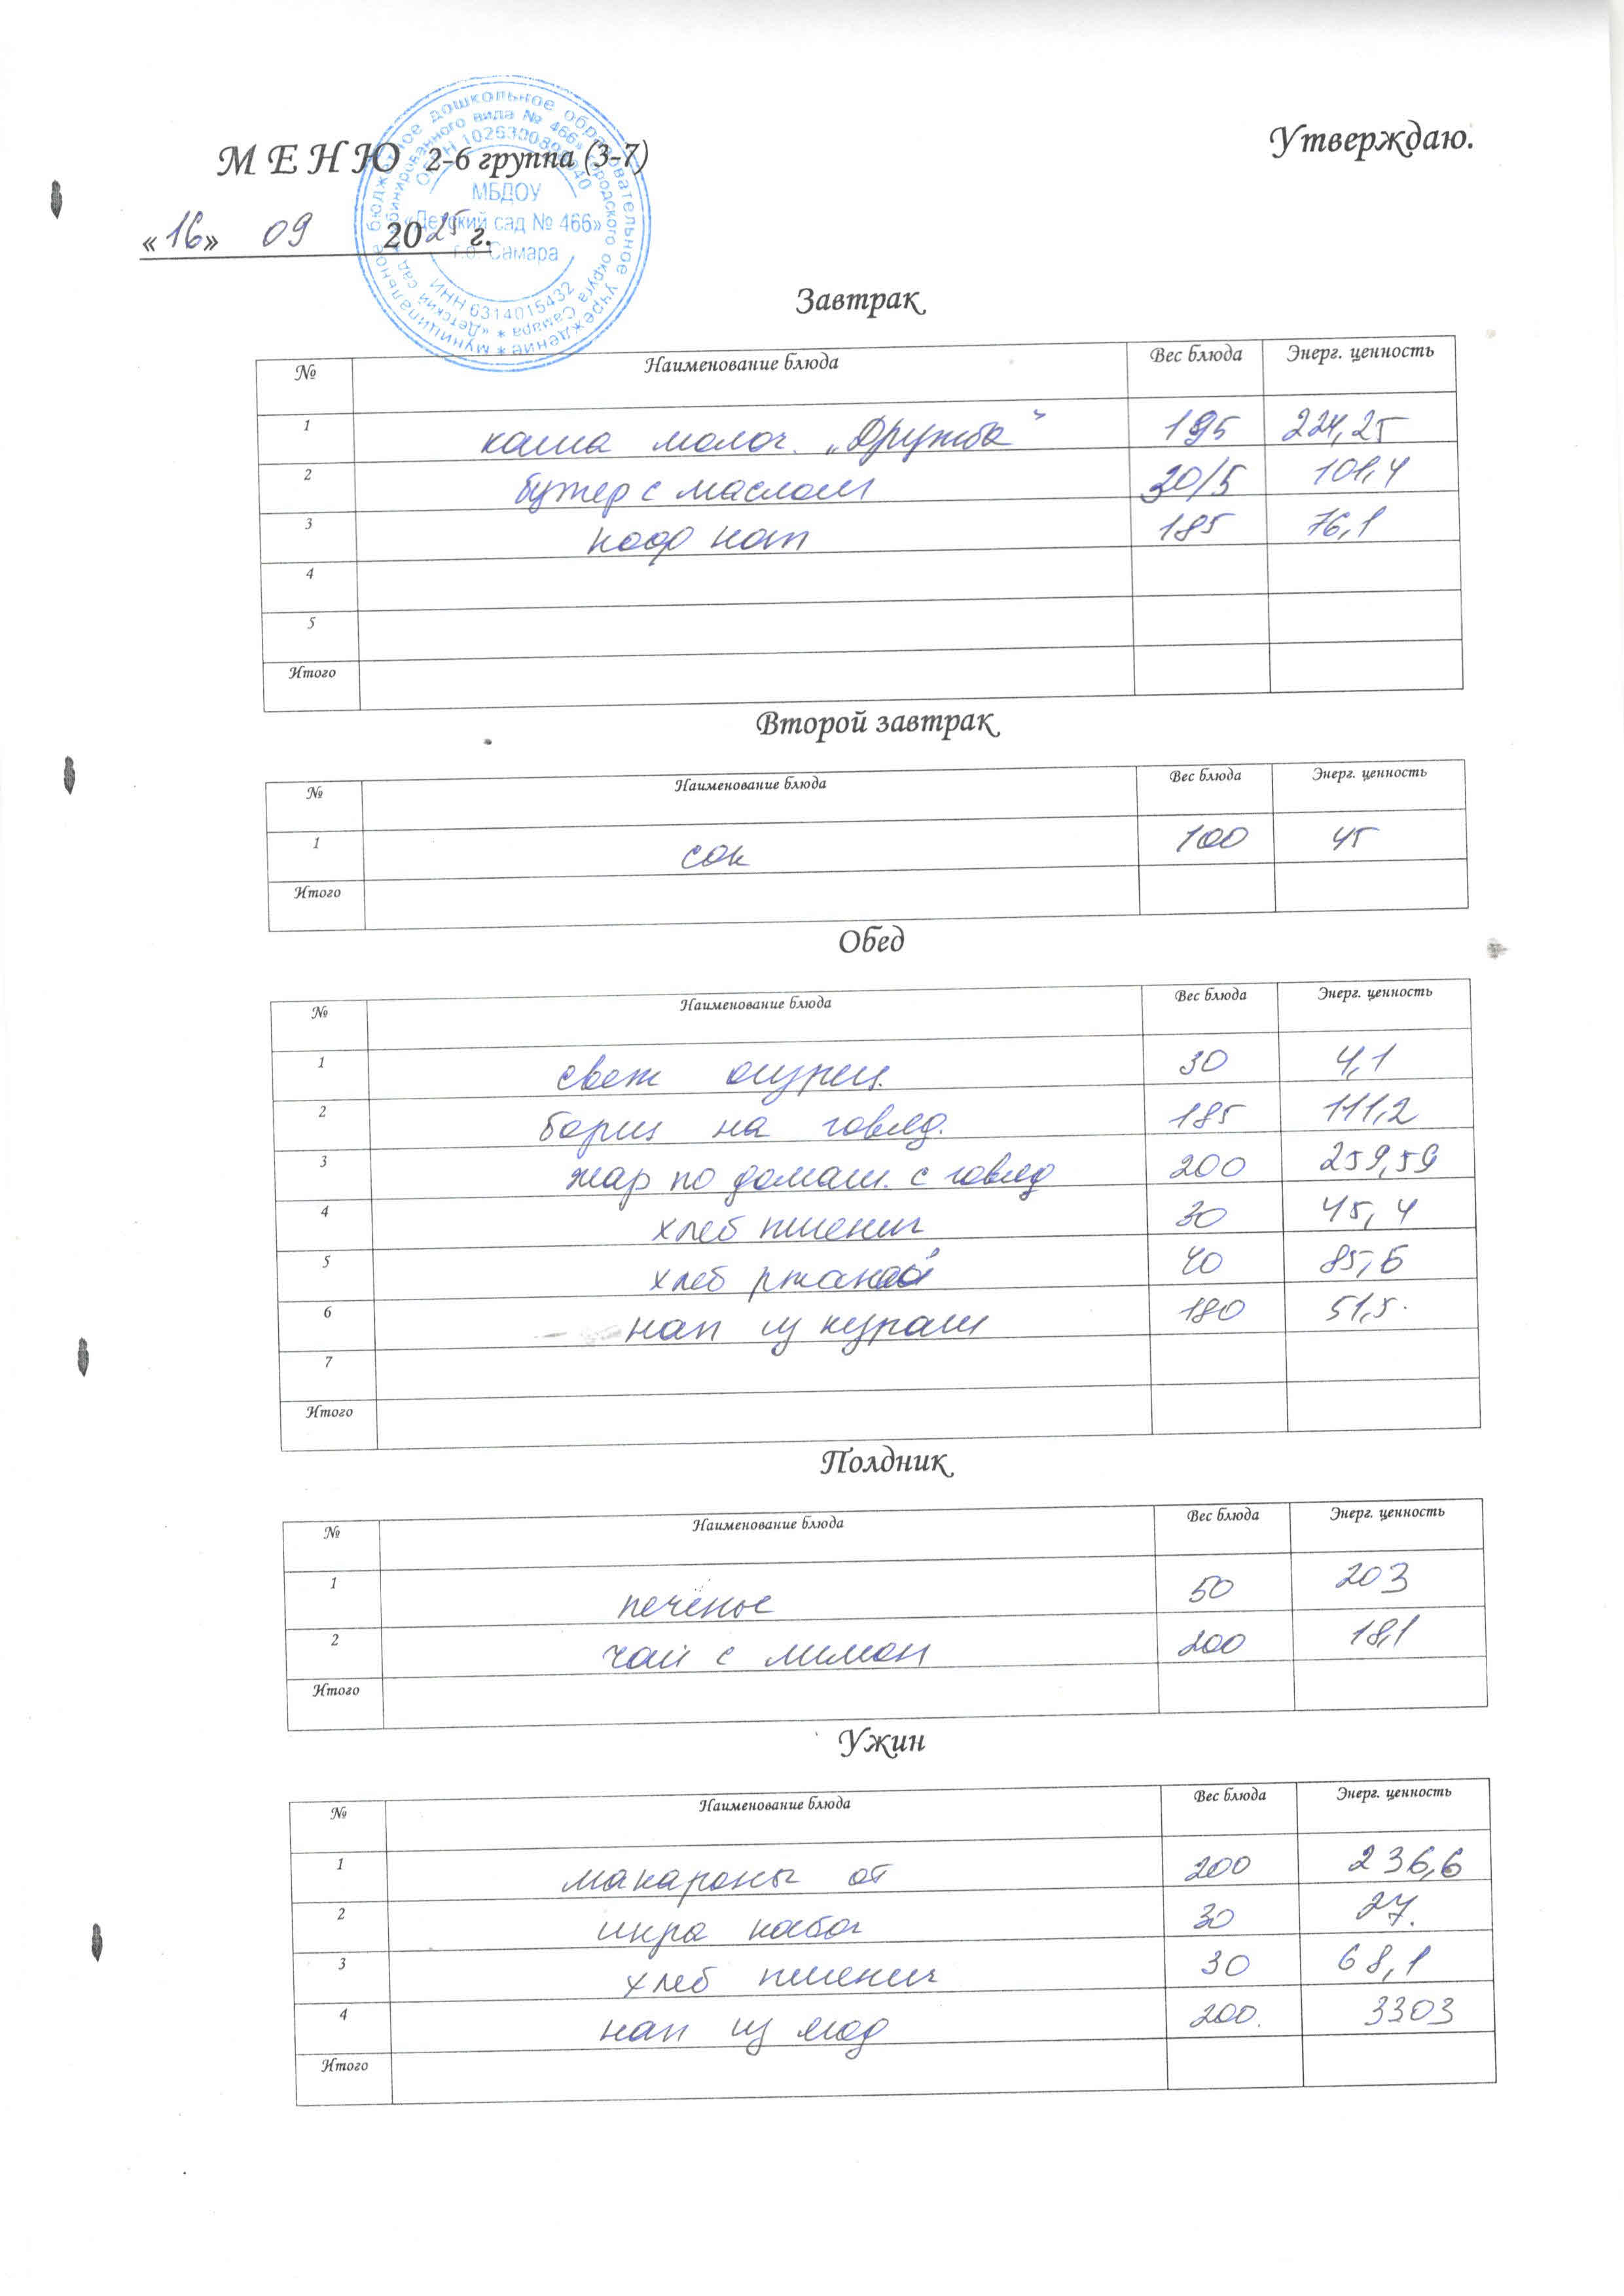 Утверждаю.
М Е Н Ю 2-6 группа (3-7)
«16» 09 2025 г.
муниципальное бюджетное дошкольное образовательное учреждение
МБДОУ
«Детский сад № 466»
г.о. Самара
ИНН 6314015432
Завтрак
№ Наименование блюда Вес блюда Энерг. ценность
1 каша молоч. „Дружба" 195 224,25
2 бутер с маслом 30/5 101,4
3 коф нап 185 76,1
4
5
Итого
Второй завтрак
№ Наименование блюда Вес блюда Энерг. ценность
1 сок 100 45
Итого
Обед
№ Наименование блюда Вес блюда Энерг. ценность
1 свеж огурец. 30 4,1
2 борщ на говяд. 185 111,2
3 жар по домаш. с говяд 200 259,59
4 хлеб пшенич 30 45,4
5 хлеб ржаной 40 85,6
6 нап из кураги 180 51,5.
7
Итого
Полдник
№ Наименование блюда Вес блюда Энерг. ценность
1 печенье 50 203
2 чай с лимон 200 18,1
Итого
Ужин
№ Наименование блюда Вес блюда Энерг. ценность
1 макароны от 200 236,6
2 икра кабач 30 27.
3 хлеб пшенич 30 68,1
4 нап из 200. 3303
Итого